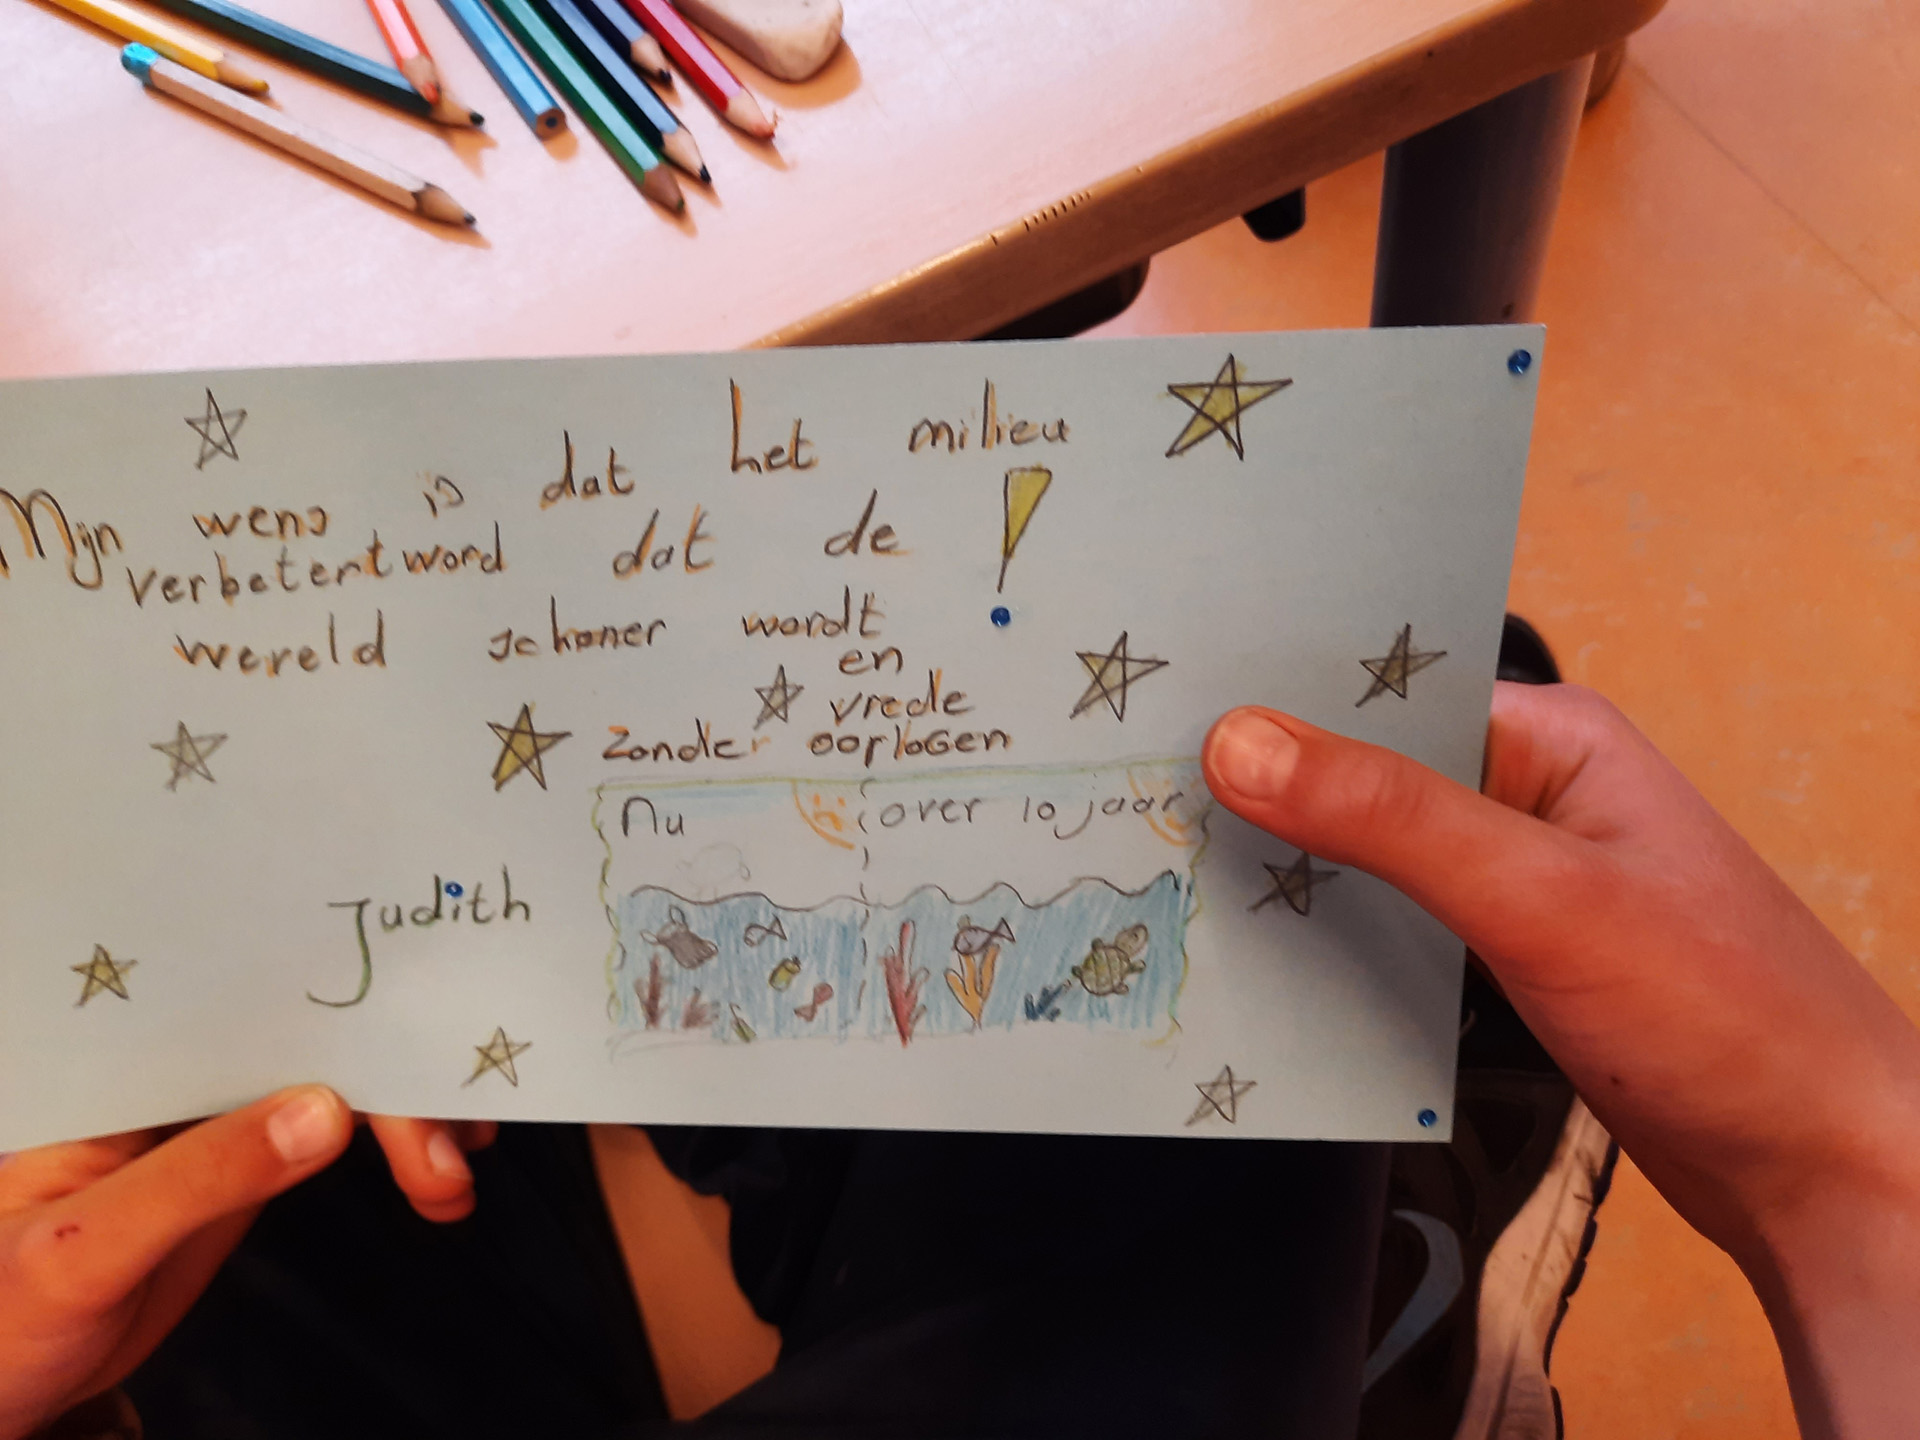 Mijn wens is dat het milieu
verbetert word dat de !
wereld schoner wordt
en
vrede
zonder oorloGen
Nu
over 10 jaar
Judith